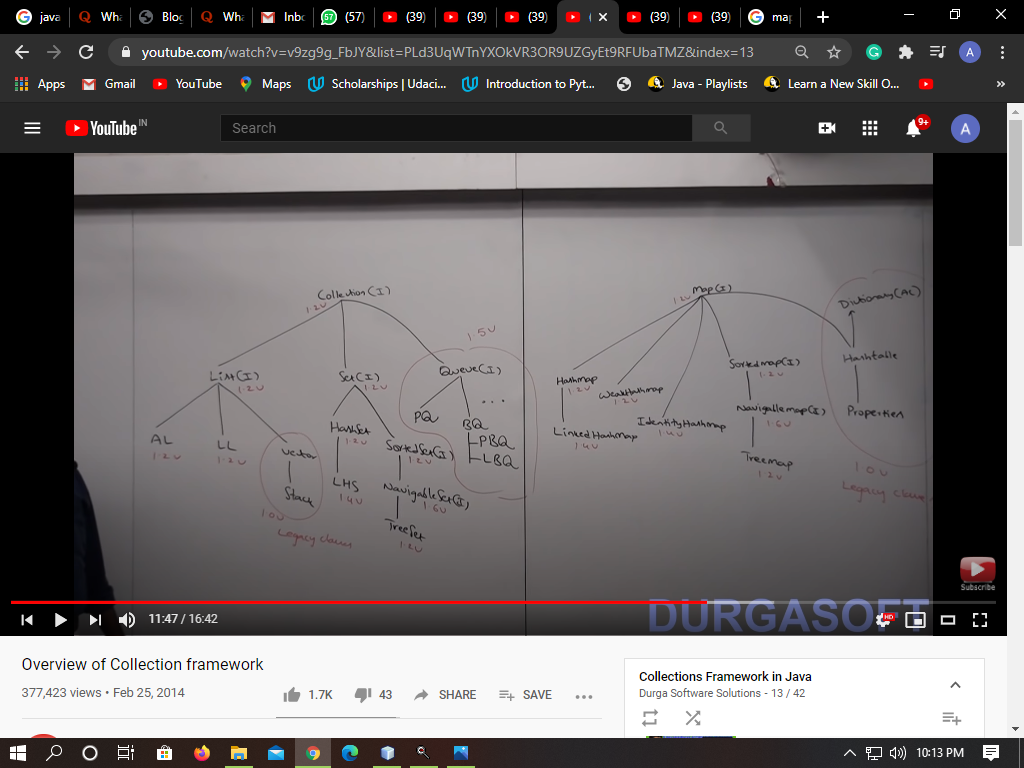 java
Wha
Bloc
Wha
Inbo
57
(57)
(39)
(39)
(39)
(39)
(39)
map
youtube.com/watch?v=v9zg9g_FbJY&list=PLd3UqWTnYXOkVR3OR9UZGyEt9RFUbaTMZ&index=13
A
Apps
Gmail
YouTube
Maps
Scholarships | Udaci...
Introduction to Pyt...
Java - Playlists
Learn a New Skill O...
»
YouTube IN
Search
9+
A
Collection(I)
1.2V
List(I)
1.2V
Set(I)
1.2V
1.5V
Queue(I)
AL
1.2V
LL
1.2V
Vector
Stack
1.0V
Legacy classes
HashSet
1.2V
LHS
1.4V
SortedSet(I)
1.2V
NavigableSet(I)
1.6V
TreeSet
1.2V
PQ
BQ
...
PBQ
LBQ
Map(I)
1.2V
Hashmap
1.2V
LinkedHashmap
1.4V
WeakHashmap
1.2V
IdentityHashmap
1.4V
Sortedmap(I)
1.2V
Navigablemap(I)
1.6V
Treemap
1.2V
Dictionary(AC)
Hashtable
Properties
1.0V
Legacy classes
Subscribe
DURGASOFT
11:47 / 16:42
HD
Overview of Collection framework
377,423 views • Feb 25, 2014
1.7K
43
SHARE
SAVE
Collections Framework in Java
Durga Software Solutions - 13 / 42
10:13 PM